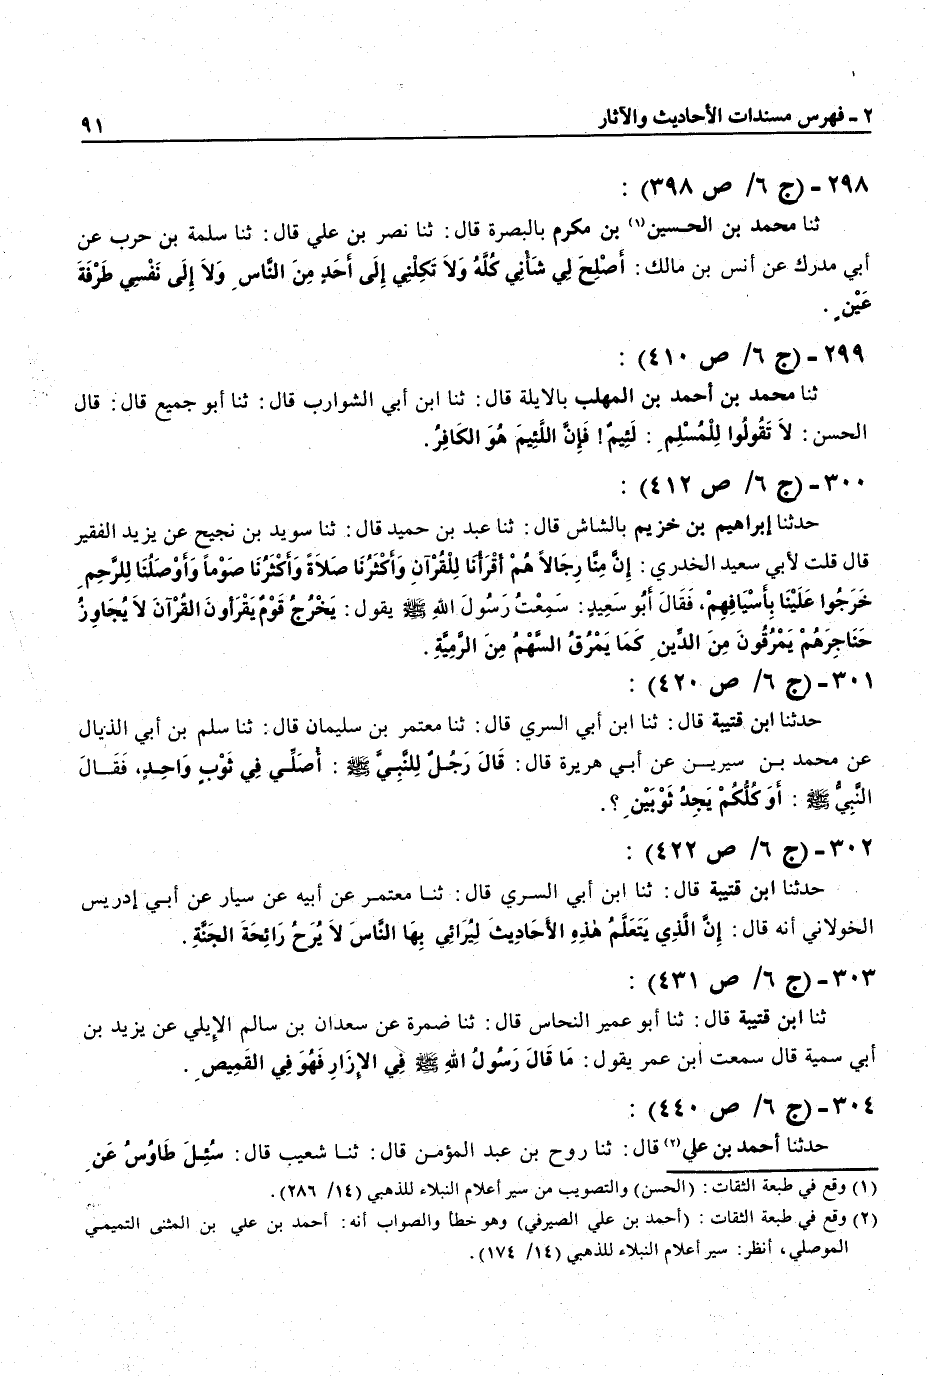 ٢ - فهرس مسندات الأحاديث والآثار ٩١
٢٩٨ - (ج ٦/ ص ٣٩٨) :
ثنا محمد بن الحسين(١) بن مكرم بالبصرة قال: ثنا نصر بن علي قال: ثنا سلمة بن حرب عن
أبي مدرك عن أنس بن مالك: أَصْلِحَ لِي شَأْنِي كُلَّهُ وَلاَ تَكِلْنِي إِلَى أَحَدٍ مِنَ النَّاسِ وَلاَ إِلَى نَفْسِي طَرْفَةَ
عَيْنٍ.
٢٩٩ - (ج ٦/ ص ٤١٠) :
ثنا محمد بن أحمد بن المهلب بالايلة قال: ثنا ابن أبي الشوارب قال: ثنا أبو جميع قال: قال
الحسن: لاَ تَقُولُوا لِلْمُسْلِمِ: لَئِيمٌ! فَإِنَّ اللَّئِيمَ هُوَ الكَافِرُ.
٣٠٠ - (ج ٦/ ص ٤١٢) :
حدثنا إبراهيم بن خزيم بالشاش قال: ثنا عبد بن حميد قال: ثنا سويد بن نجيح عن يزيد الفقير
قال قلت لأبي سعيد الخدري: إِنَّ مِنَّا رِجَالاً هُمْ أَقْرَأُنَا لِلْقُرْآنِ وَأَكْثَرُنَا صَلاَةً وَأَكْثَرُنَا صَوْماً وَأَوْصَلُنَا لِلرَّحِمِ
خَرَجُوا عَلَيْنَا بِأَسْيَافِهِمْ، فَقَالَ أَبُو سَعِيدٍ: سَمِعْتُ رَسُولَ اللهِ ﷺ يقول: يَخْرُجُ قَوْمٌ يَقْرَأونَ القُرْآنَ لاَ يُجَاوِزُ
حَنَاجِرَهُمْ يَمْرُقُونَ مِنَ الدِّينِ كَمَا يَمْرُقُ السَّهْمُ مِنَ الرَّمِيَّةِ.
٣٠١ - (ج ٦/ ص ٤٢٠) :
حدثنا ابن قتيبة قال: ثنا ابن أبي السري قال: ثنا معتمر بن سليمان قال: ثنا سلم بن أبي الذيال
عن محمد بن سيرين عن أبي هريرة قال: قَالَ رَجُلٌ لِلنَّبِيِّ ﷺ: أُصَلِّي فِي ثَوْبٍ وَاحِدٍ، فَقَالَ
النَّبِيُّ ﷺ: أَوَ كُلُّكُمْ يَجِدُ ثَوْبَيْنِ؟.
٣٠٢ - (ج ٦/ ص ٤٢٢) :
حدثنا ابن قتيبة قال: ثنا ابن أبي السري قال: ثنا معتمر عن أبيه عن سيار عن أبي إدريس
الخولاني أنه قال: إِنَّ الَّذِي يَتَعَلَّمُ هٰذِهِ الأَحَادِيثَ لِيُرَائِي بِهَا النَّاسَ لاَ يُرَحُ رَائِحَةَ الجَنَّةِ.
٣٠٣ - (ج ٦/ ص ٤٣١) :
ثنا ابن قتيبة قال: ثنا أبو عمير النحاس قال: ثنا ضمرة عن سعدان بن سالم الإيلي عن يزيد بن
أبي سمية قال سمعت ابن عمر يقول: مَا قَالَ رَسُولُ اللهِ ﷺ فِي الإِزَارِ فَهُوَ فِي القَمِيصِ.
٣٠٤ - (ج ٦/ ص ٤٤٠) :
حدثنا أحمد بن علي(٢) قال: ثنا روح بن عبد المؤمن قال: ثنا شعيب قال: سُئِلَ طَاوُسُ عَنِ
(١) وقع في طبعة الثقات: (الحسن) والتصويب من سير أعلام النبلاء للذهبي (١٤/ ٢٨٦).
(٢) وقع في طبعة الثقات: (أحمد بن علي الصيرفي) وهو خطأ والصواب أنه: أحمد بن علي بن المثنى التميمي
الموصلي، أنظر: سير أعلام النبلاء للذهبي (١٤/ ١٧٤).